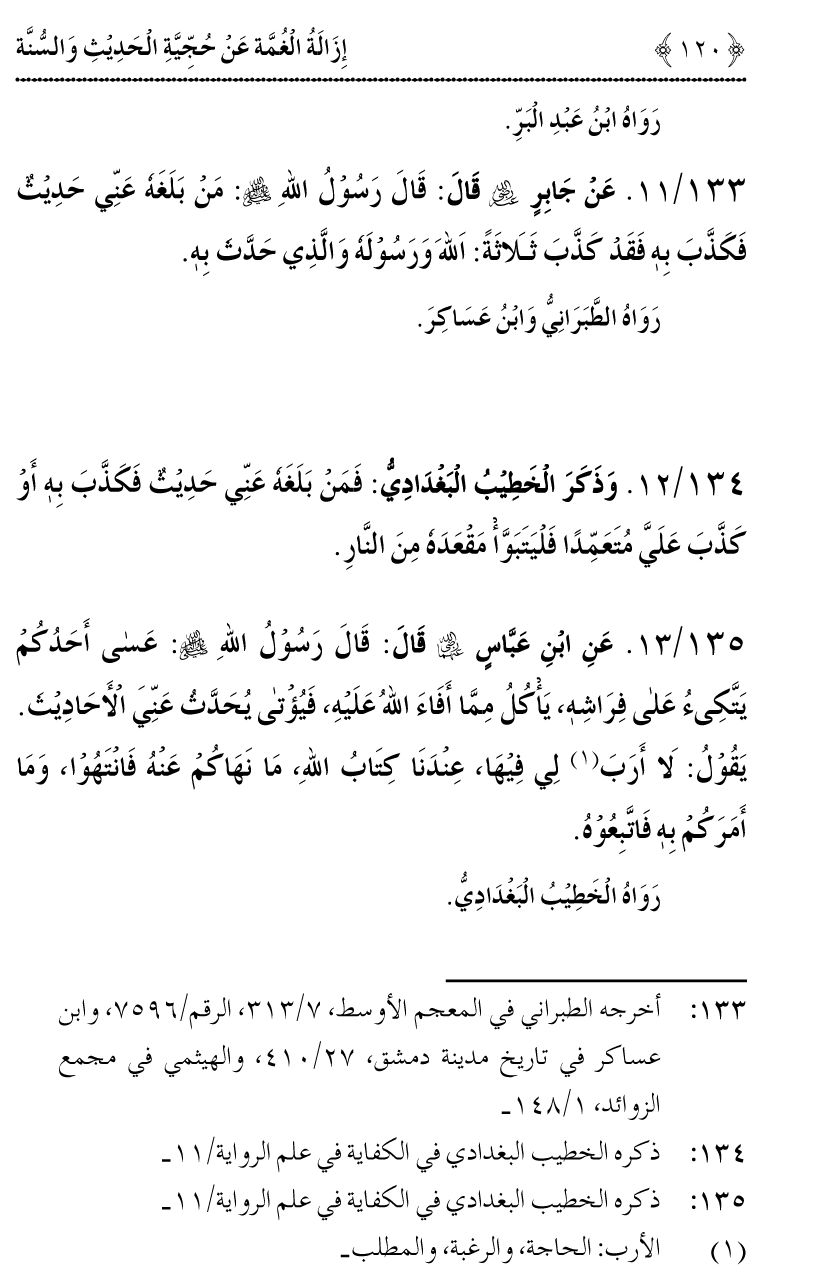 ﴿١٢٠﴾ إِزَالَةُ الْغُمَّة عَنْ حُجِّيَّةِ الْحَدِيْثِ وَالسُّنَّة
رَوَاهُ ابْنُ عَبْدِ الْبَرِّ.
١١/١٣٣. عَنْ جَابِرٍ ﷺ قَالَ: قَالَ رَسُوْلُ اللهِ ﷺ: مَنْ بَلَغَهُ عَنِّي حَدِيْثٌ
فَكَذَّبَ بِهِ فَقَدْ كَذَّبَ ثَلَاثَةً: اَللهَ وَرَسُوْلَهُ وَالَّذِي حَدَّثَ بِهِ.
رَوَاهُ الطَّبَرَانِيُّ وَابْنُ عَسَاكِرَ.
١٢/١٣٤. وَذَكَرَ الْخَطِيْبُ الْبَغْدَادِيُّ: فَمَنْ بَلَغَهُ عَنِّي حَدِيْثٌ فَكَذَّبَ بِهِ أَوْ
كَذَّبَ عَلَيَّ مُتَعَمِّدًا فَلْيَتَبَوَّأْ مَقْعَدَهُ مِنَ النَّارِ.
١٣/١٣٥. عَنِ ابْنِ عَبَّاسٍ قَالَ: قَالَ رَسُوْلُ اللهِ ﷺ: عَسٰى أَحَدُكُمْ
يَتَّكِىءُ عَلٰى فِرَاشِهِ، يَأْكُلُ مِمَّا أَفَاءَ اللهُ عَلَيْهِ، فَيُؤْتٰى يُحَدَّثُ عَنِّيَ الْأَحَادِيْثَ.
يَقُوْلُ: لَا أَرَبَ(١) لِي فِيْهَا، عِنْدَنَا كِتَابُ اللهِ، مَا نَهَاكُمْ عَنْهُ فَانْتَهُوْا، وَمَا
أَمَرَكُمْ بِهِ فَاتَّبِعُوْهُ.
رَوَاهُ الْخَطِيْبُ الْبَغْدَادِيُّ.
١٣٣: أخرجه الطبراني في المعجم الأوسط، ٣١٣/٧، الرقم/٧٥٩٦، وابن
عساكر في تاريخ مدينة دمشق، ٤١٠/٢٧، والهيثمي في مجمع
الزوائد، ١٤٨/١ـ
١٣٤: ذكره الخطيب البغدادي في الكفاية في علم الرواية/١١ـ
١٣٥: ذكره الخطيب البغدادي في الكفاية في علم الرواية/١١ـ
(١) الأرب: الحاجة، والرغبة، والمطلب۔